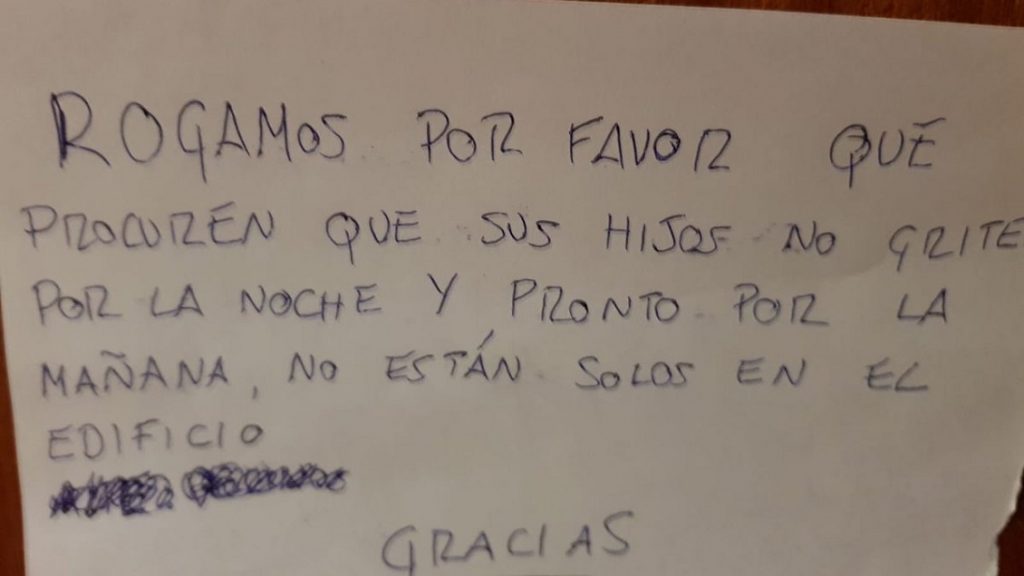 ROGAMOS POR FAVOR QUE
PROCUREN QUE SUS HIJOS NO GRITE
POR LA NOCHE Y PRONTO POR LA
MAÑANA, NO ESTÁN SOLOS EN EL
EDIFICIO
GRACIAS